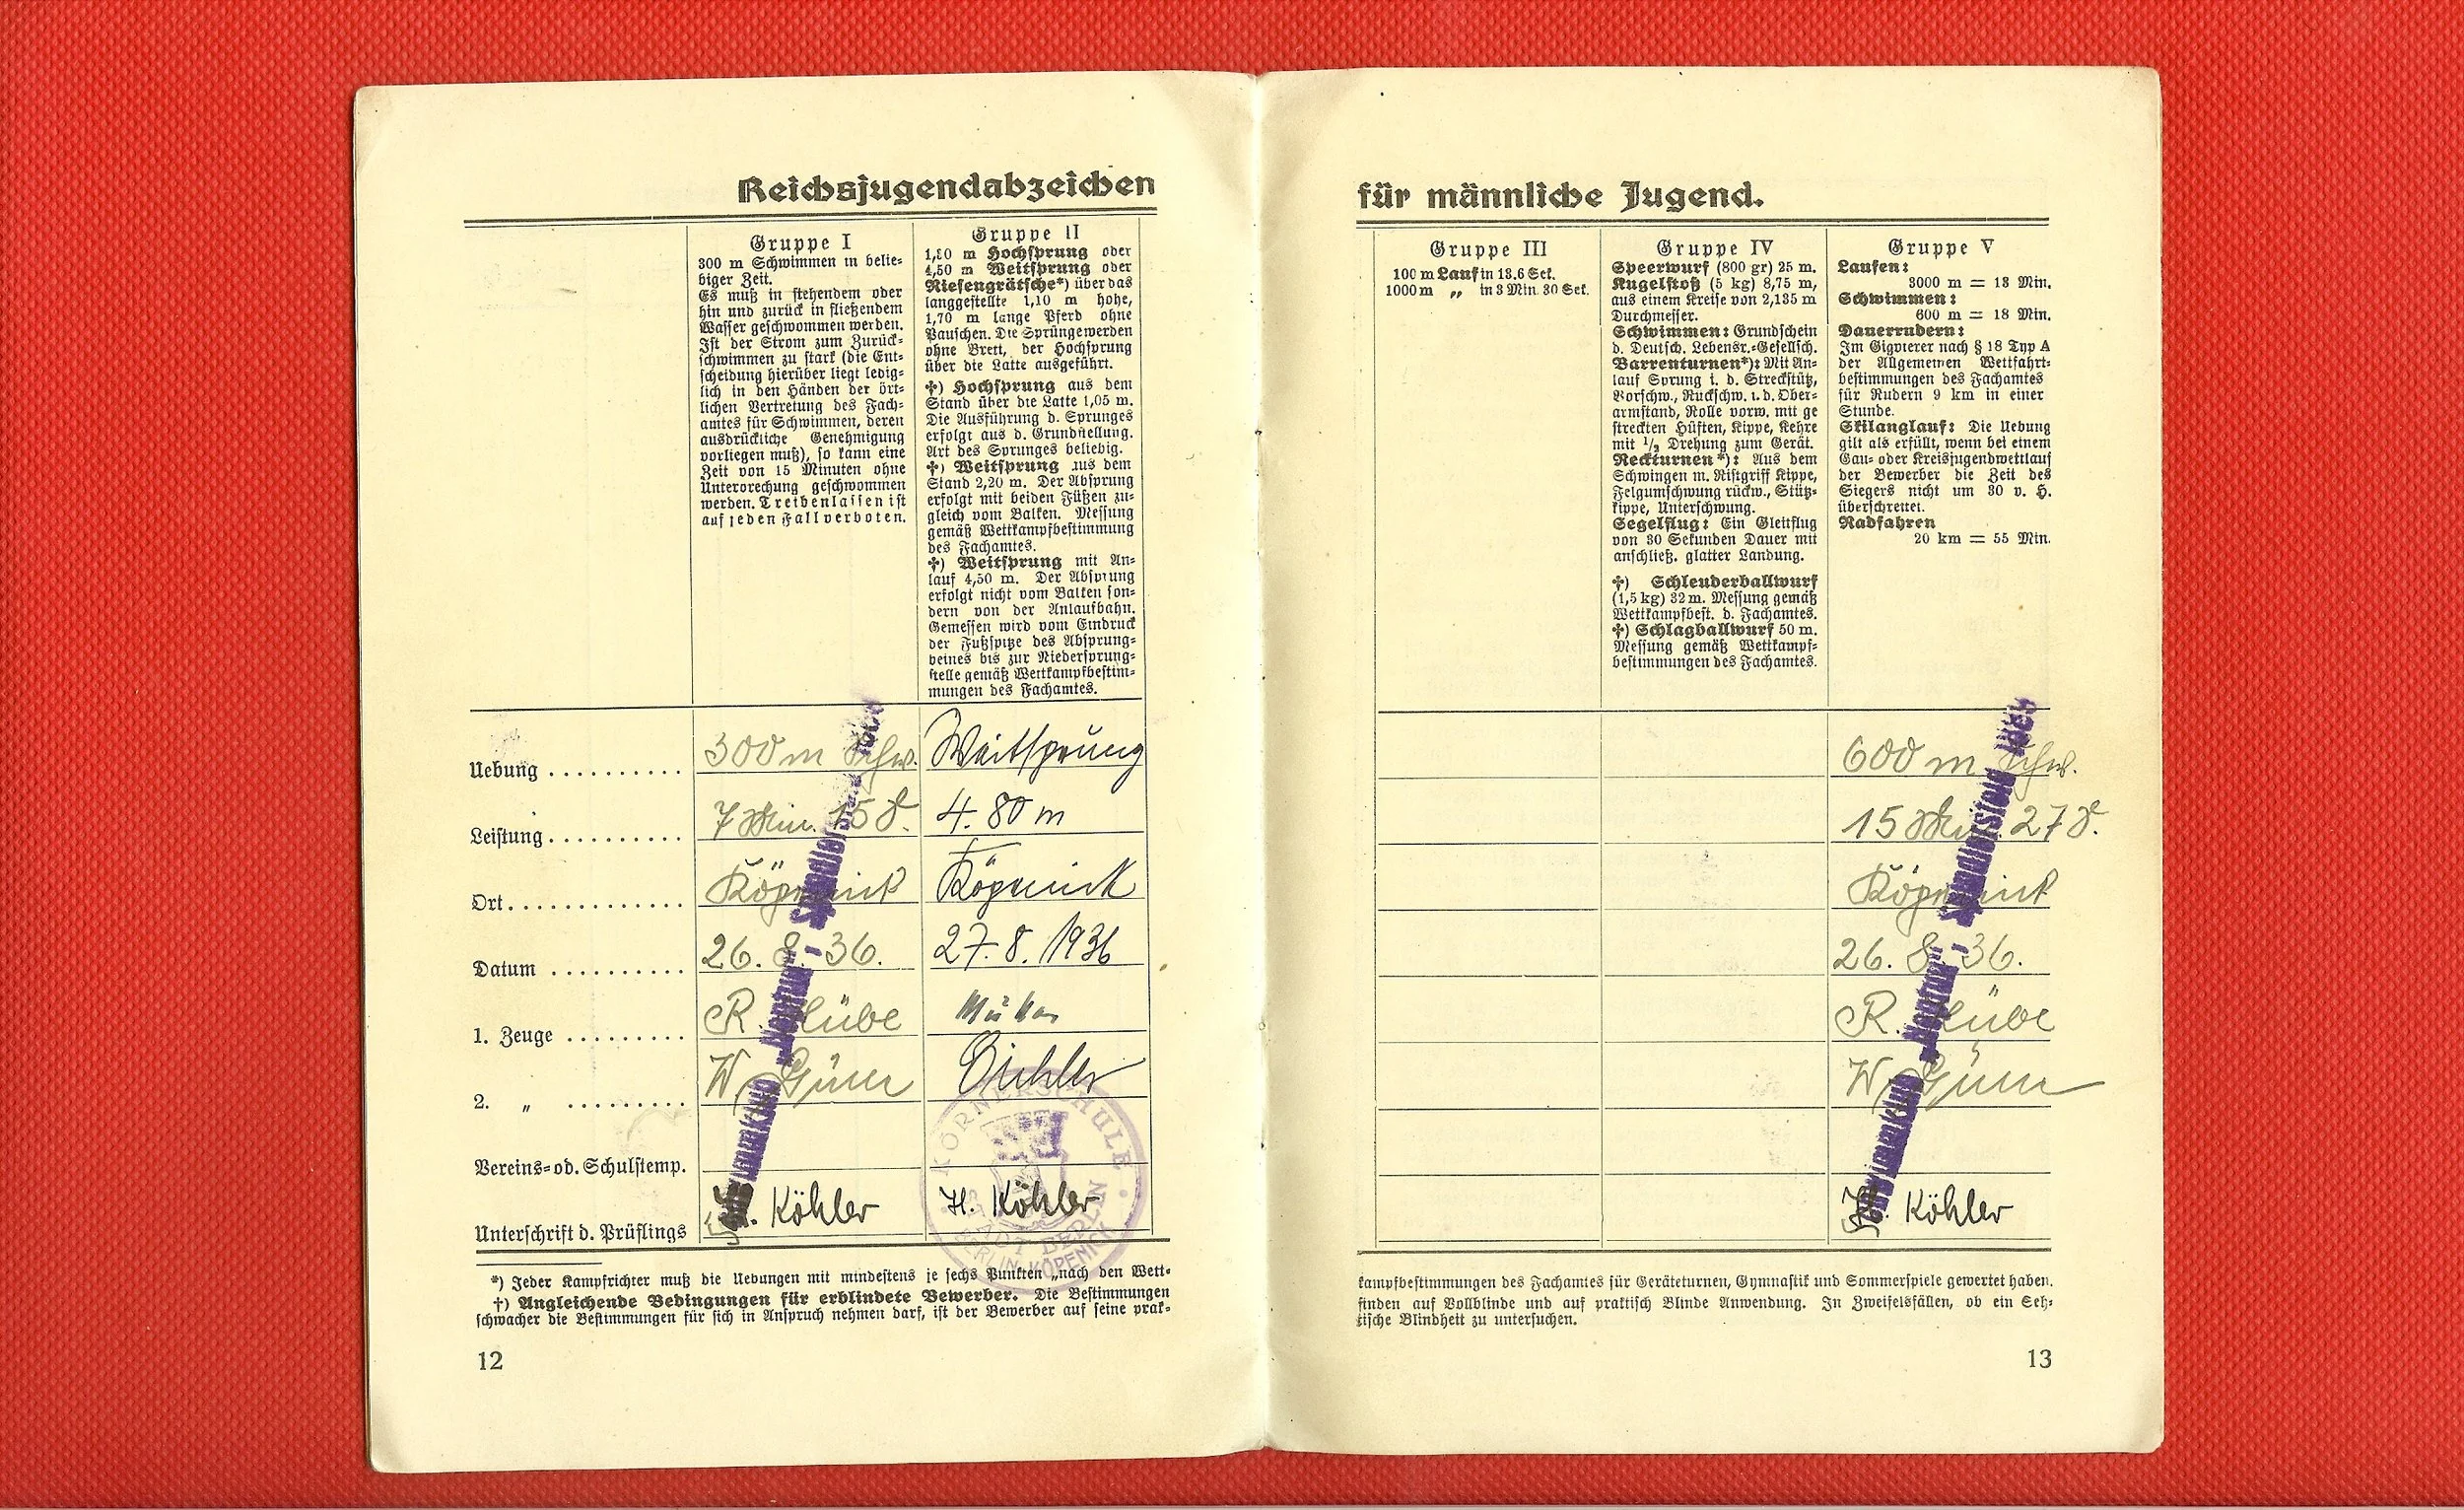 Reichsjugendabzeichen
Gruppe I
300 m Schwimmen in belie-
biger Zeit.
Es muß in stehendem oder
hin und zurück in fließendem
Wasser geschwommen werden.
Ist der Strom zum Zurück-
schwimmen zu stark (die Ent-
scheidung hierüber liegt ledig-
lich in den Händen der ört-
lichen Vertretung des Fach-
amtes für Schwimmen, deren
ausdrückliche Genehmigung
vorliegen muß), so kann eine
Zeit von 15 Minuten ohne
Unterbrechung geschwommen
werden. Treibenlassen ist
auf jeden Fall verboten.
Gruppe II
1,30 m Hochsprung oder
4,50 m Weitsprung oder
Riesengrätsche*) über das
langgestellte 1,10 m hohe,
1,70 m lange Pferd ohne
Pauschen. Die Sprünge werden
ohne Brett, der Hochsprung
über die Latte ausgeführt.
†) Hochsprung aus dem
Stand über die Latte 1,05 m.
Die Ausführung d. Sprunges
erfolgt aus d. Grundstellung.
Art des Sprunges beliebig.
†) Weitsprung aus dem
Stand 2,20 m. Der Absprung
erfolgt mit beiden Füßen zu-
gleich vom Balken. Messung
gemäß Wettkampfbestimmung
des Fachamtes.
†) Weitsprung mit An-
lauf 4,50 m. Der Absprung
erfolgt nicht vom Balken son-
dern von der Anlaufbahn.
Gemessen wird vom Eindruck
der Fußspitze des Absprung-
beines bis zur Niedersprung-
stelle gemäß Wettkampfbestim-
mungen des Fachamtes.
Uebung .......... 300 m Schw. Weitsprung
Leistung .......... 7 Min. 15 S. 4.80 m
Ort ............. Köpenick Köpenick
Datum .......... 26. 8. 36. 27. 8. 1936
1. Zeuge ......... R.
2. „ ......... W. Eichler
Vereins- od. Schulstemp.
Unterschrift d. Prüflings H. Köhler H. Köhler
Schwimmklub „Neptun“, Spindlersfeld
KÖRNERSCHULE
STADT BERLIN
BERLIN-KÖPENICK
*) Jeder Kampfrichter muß die Uebungen mit mindestens je sechs Punkten „nach den Wett-
†) Angleichende Bedingungen für erblindete Bewerber. Die Bestimmungen
schwacher die Bestimmungen für sich in Anspruch nehmen darf, ist der Bewerber auf seine prak-
12
für männliche Jugend.
Gruppe III
100 m Lauf in 13.6 Sek.
1000 m „ in 3 Min. 30 Sek.
Gruppe IV
Speerwurf (800 gr) 25 m.
Kugelstoß (5 kg) 8,75 m,
aus einem Kreise von 2,135 m
Durchmesser.
Schwimmen: Grundschein
d. Deutsch. Lebensr.-Gesellsch.
Barrenturnen*): Mit An-
lauf Sprung i. d. Streckstütz,
Vorschw., Rückschw. i. d. Ober-
armstand, Rolle vorw. mit ge
streckten Hüften, Kippe, Kehre
mit 1/2 Drehung zum Gerät.
Reckturnen*): Aus dem
Schwingen m. Ristgriff Kippe,
Felgumschwung rückw., Stütz-
kippe, Unterschwung.
Segelflug: Ein Gleitflug
von 30 Sekunden Dauer mit
anschließ. glatter Landung.
†) Schleuderballwurf
(1,5 kg) 32 m. Messung gemäß
Wettkampfbest. d. Fachamtes.
†) Schlagballwurf 50 m.
Messung gemäß Wettkampf-
bestimmungen des Fachamtes.
Gruppe V
Laufen:
3000 m = 13 Min.
Schwimmen:
600 m = 18 Min.
Dauerrudern:
Im Gigvierer nach § 18 Typ A
der Allgemeinen Wettfahrt-
bestimmungen des Fachamtes
für Rudern 9 km in einer
Stunde.
Skilanglauf: Die Uebung
gilt als erfüllt, wenn bei einem
Gau- oder Kreisjugendwettlauf
der Bewerber die Zeit des
Siegers nicht um 30 v. H.
überschreitet.
Radfahren
20 km = 55 Min.
600 m Schw.
15 Min. 27 S.
Köpenick
26. 8. 36.
R.
W.
H. Köhler
Schwimmklub „Neptun“, Spindlersfeld
kampfbestimmungen des Fachamtes für Geräteturnen, Gymnastik und Sommerspiele gewertet haben.
finden auf Vollblinde und auf praktisch Blinde Anwendung. In Zweifelsfällen, ob ein Seh-
tische Blindheit zu untersuchen.
13